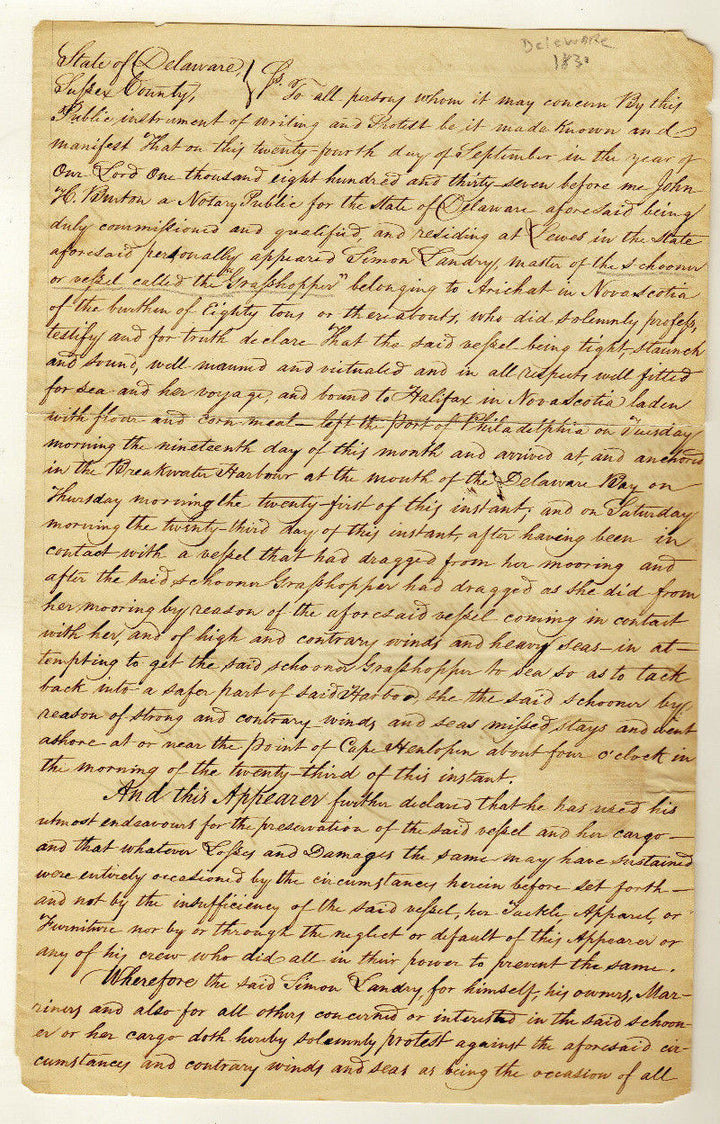 Deleware
183
State of Delaware,
Sussex County, } Ss. To all persons whom it may concern By this
Public instrument of writing and Protest be it made known and
manifest That on this twenty fourth day of September in the year of
Our Lord One thousand eight hundred and thirty-seven before me John
H. Burton a Notary Public for the State of Delaware aforesaid being
duly commissioned and qualified, and residing at Lewes in the State
aforesaid personally appeared Simon Landry, master of the schooner
or vessel called the "Grasshopper" belonging to Arichat in Novascotia
of the burthen of Eighty tons or thereabouts, who did solemnly profess,
testify and for truth declare That the said vessel being tight, staunch
and sound, well manned and victualed and in all respects well fitted
for sea and her voyage, and bound to Halifax in Novascotia laden
with flour and corn meal — left the Port of Philadelphia on Tuesday
morning the nineteenth day of this month and arrived at, and anchored
in the Breakwater Harbour at the mouth of the Delaware Bay on
Thursday morning the twenty-first of this instant; and on Saturday
morning the twenty-third day of this instant, after having been in
contact with a vessel that had dragged from her mooring and
after the said schooner Grasshopper had dragged as she did from
her mooring by reason of the aforesaid vessel coming in contact
with her, and of high and contrary winds and heavy seas — in at-
tempting to get the said schooner Grasshopper to sea so as to tack
back into a safer part of said Harbor, she the said schooner by
reason of strong and contrary winds and seas missed stays and went
ashore at or near the Point of Cape Henlopen about four o'clock in
the morning of the twenty-third of this instant.
And this Appearer further declared that he has used his
utmost endeavours for the preservation of the said vessel and her cargo —
and that whatever Losses and Damages the same may have sustained
were entirely occasioned by the circumstances herein before set forth —
and not by the insufficiency of the said vessel, her Tackle Apparel, or
Furniture nor by or through the neglect or default of this Appearer or
any of his crew who did all in their power to prevent the same.
Wherefore the said Simon Landry, for himself, his owners, Mar-
riners and also for all others concerned or interested in the said schoon-
er or her cargo doth hereby solemnly protest against the aforesaid cir-
cumstances and contrary winds and seas as being the occasion of all